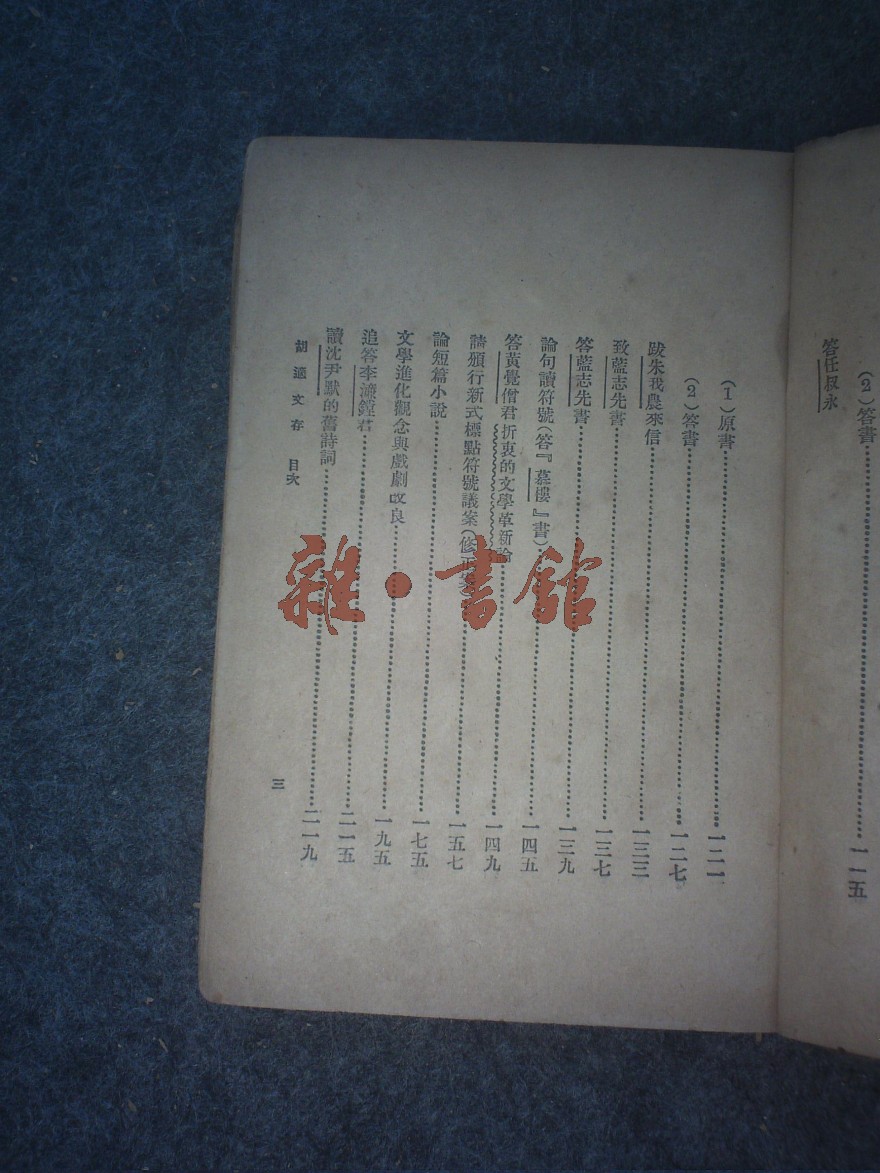 (2)答書……一一五
答任叔永
(1)原書……一二一
(2)答書……一二七
跋朱我農來信……一三三
致藍志先書……一三七
答藍志先書……一三九
論句讀符號(答『慕樓』書)……一四五
答黃覺僧君折衷的文學革新論……一四九
請頒行新式標點符號議案(修正案)……一五七
論短篇小說……一七五
文學進化觀念與戲劇改良……一九五
追答李濂鏜君……二一五
讀沈尹默的舊詩詞……二一九
胡適文存 目次 三
雜·書館